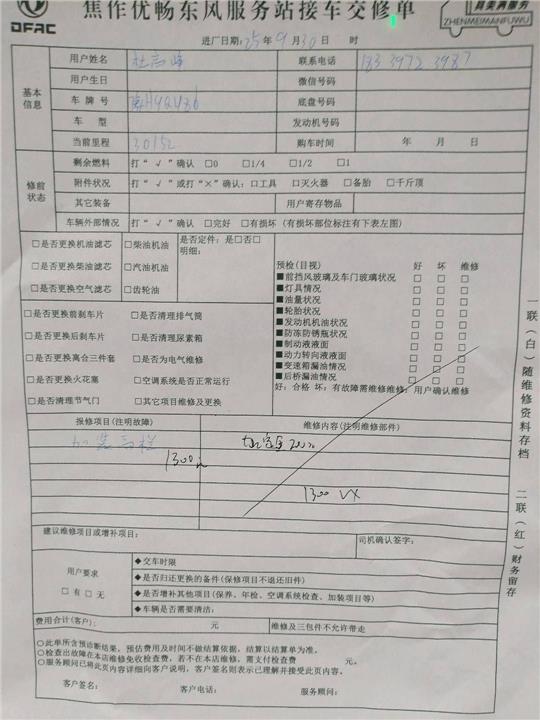 焦作优畅东风服务站接车交修单
DFAC
ZHENMEIMANFUWU
进厂日期：25年9月30日 时
基本信息
用户姓名 杜高峰 联系电话 183 3972 3987
用户生日 微信号码
车牌号 底盘号码
车型 发动机号码
当前里程 30152 购车时间 年 月 日
修前状态
剩余燃料 打“√”确认 □0 □1/4 □1/2 □1
附件状况 打“√”或打“×”确认：□工具 □灭火器 □备胎 □千斤顶
其它装备 用户寄存物品
车辆外部情况 打“√”确认 □完好 □有损坏（有损坏部位标注有下表左图）
□是否更换机油滤芯 □柴油机油 是否定件：是□否□
明细：
□是否更换柴油滤芯 □汽油机油
□是否更换空气滤芯 □齿轮油
预检(目视) 好 坏 维修
■前挡风玻璃及车门玻璃状况 □ □ □
■灯具情况 □ □ □
■油量状况 □ □ □
■轮胎状况 □ □ □
■发动机机油状况 □ □ □
■防冻防锈瓶状况 □ □ □
■制动液液面 □ □ □
■动力转向液液面 □ □ □
■变速箱漏油情况 □ □ □
■后桥漏油情况 □ □ □
好：合格 坏：有故障需维修维修：用户确认维修
□是否更换前刹车片 □是否清理排气筒
□是否更换后刹车片 □是否清理尿素箱
□是否更换离合三件套 □是否为电气维修
□是否更换火花塞 □空调系统是否正常运行
□是否清理节气门 □其它项目维修及更换
报修项目(注明故障) 维修内容(注明维修部件)
加装高栏
1300
1300 VX
建议维修项目或增补项目： 司机确认签字：
用户要求
□有□无
◆交车时限
◆是否归还更换的备件(保修项目不退还旧件)
◆是否增补其他项目(保养、年检、空调系统检查、加装项目等)
◆车辆是否需要清洁：
费用合计(客户)： 元 维修及三包件不允许带走
○此单所含预诊断结果，预估费用及时间不做结算依据，结算以结算单为准。
○检查出故障在本店维修免收检查费，若不在本店维修，需支付检查费 元。
○服务顾问已将此页内容详细向客户说明，客户签名则表示已理解并接受此页内容。
客户签名： 客户电话： 服务顾问：
一联（白）随维修资料存档
二联（红）财务留存